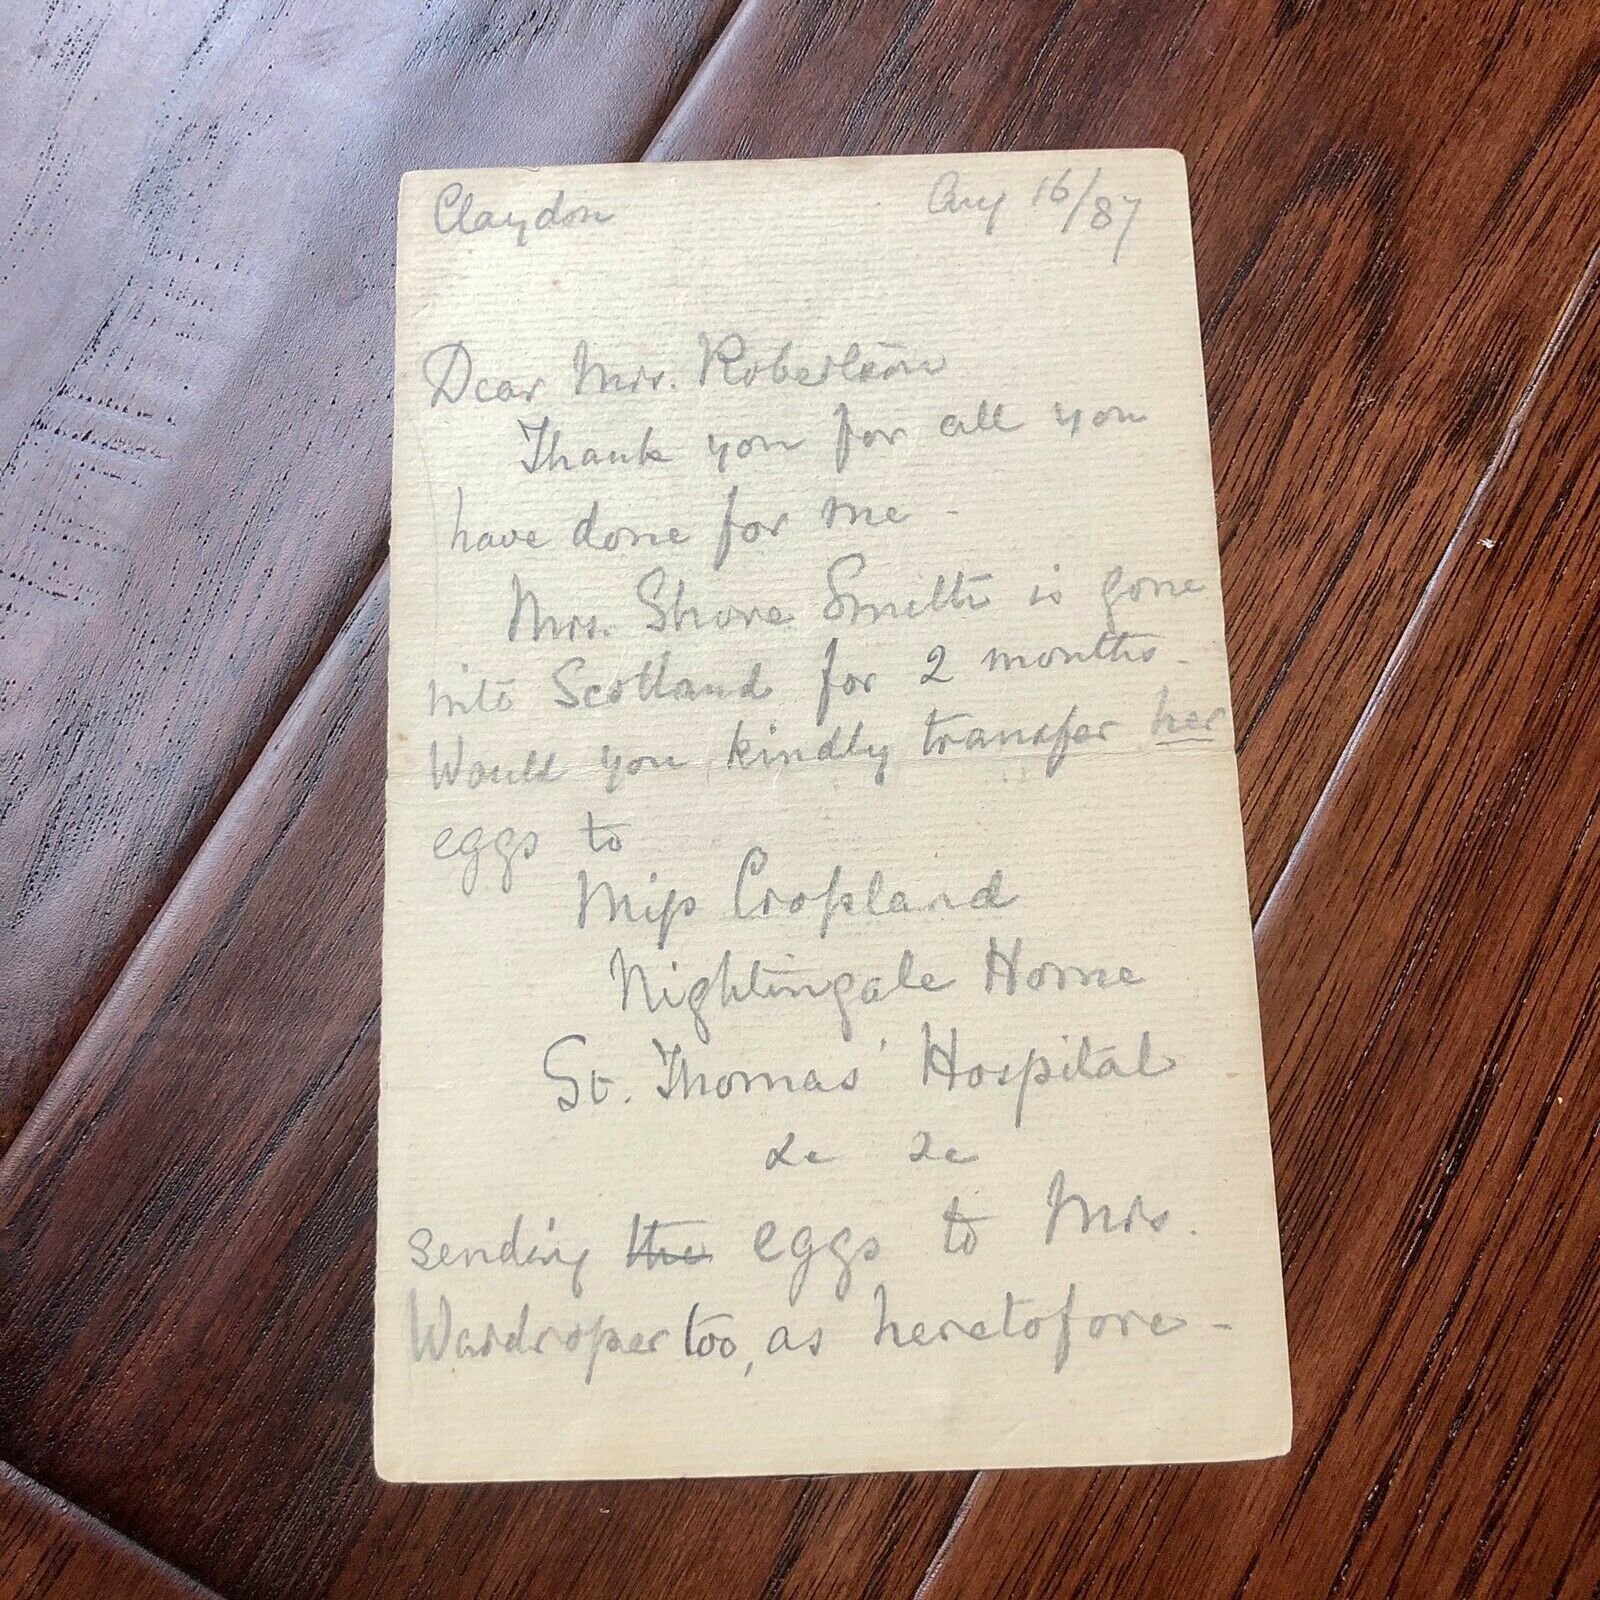 Claydon Aug 16/87
Dear Mrs. Robertson
Thank you for all you
have done for me -
Mrs. Shore Smith is gone
into Scotland for 2 months -
Would you kindly transfer her
eggs to
Miſs Croſsland
Nightingale Home
St. Thomas' Hospital
&c &c
sending the eggs to Mrs.
Wardroper too, as heretofore -